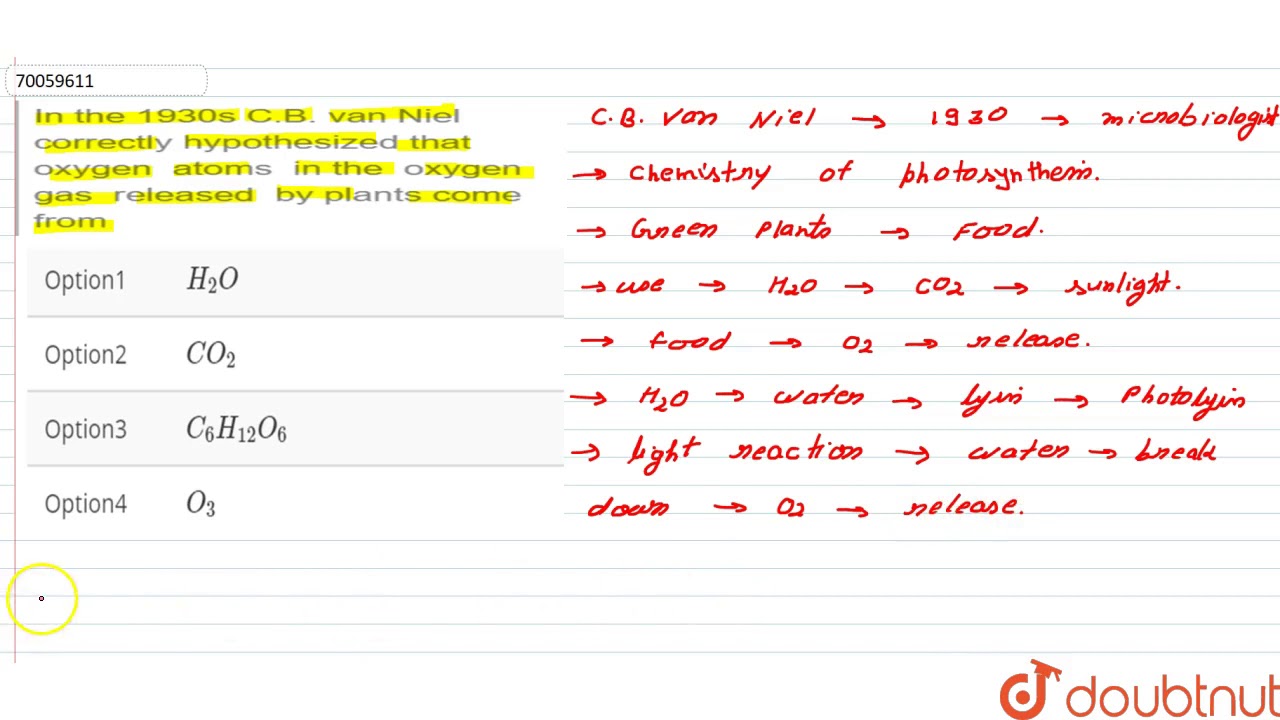 70059611
In the 1930s C.B. van Niel
correctly hypothesized that
oxygen atoms in the oxygen
gas released by plants come
from
Option1 H₂O
Option2 CO₂
Option3 C₆H₁₂O₆
Option4 O₃
C.B. Van Niel → 1930 → microbiologist
→ Chemistry of photosynthesis.
→ Green Plants → Food.
→ use → H₂O → CO₂ → sunlight.
→ food → O₂ → release.
→ H₂O → water → lysis → Photolysis
→ light reaction → water → break
down → O₂ → release.
doubtnut